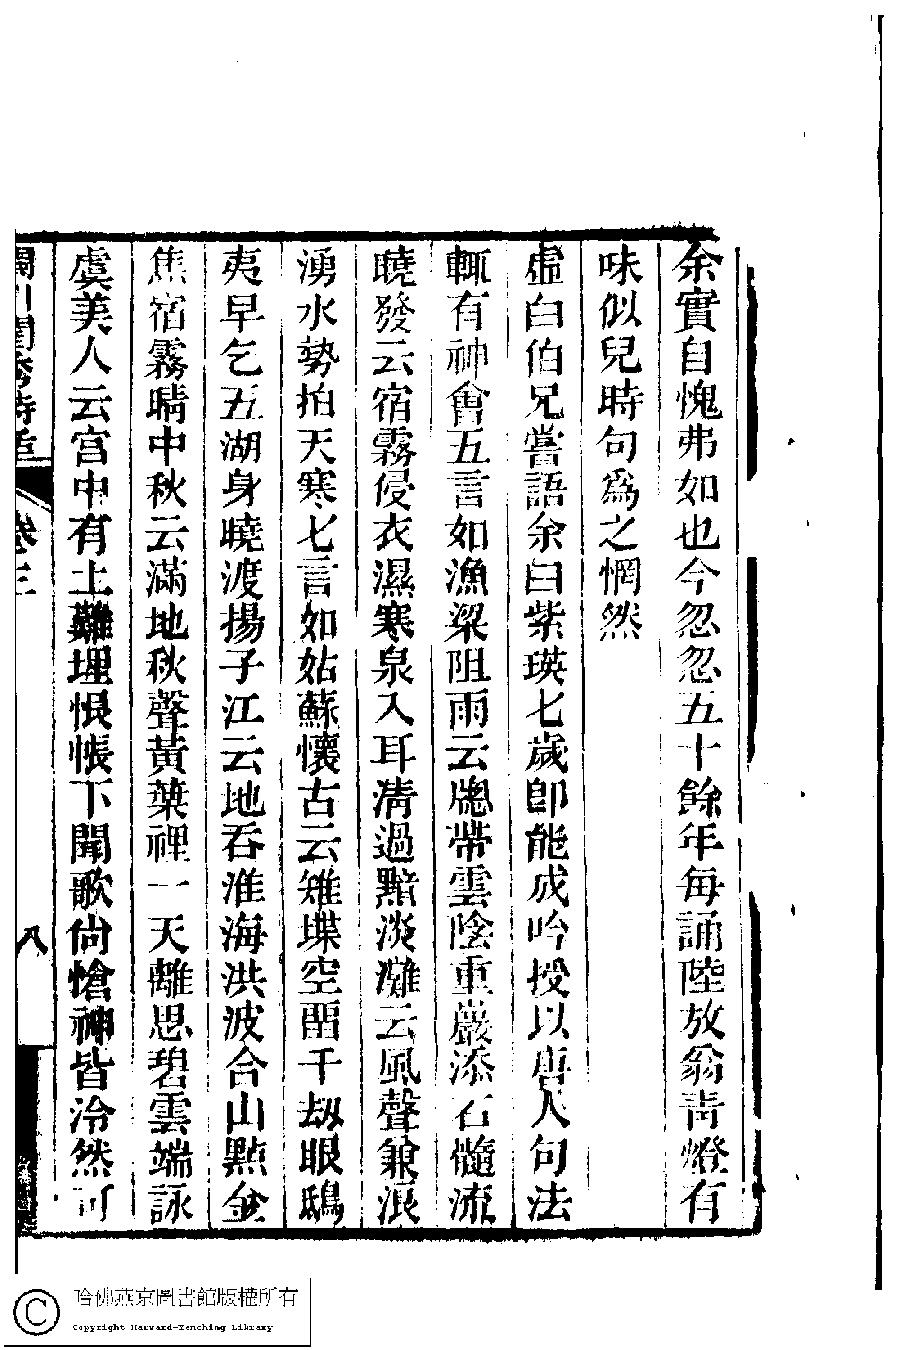 余實自愧弗如也今忽忽五十餘年每誦陸放翁靑燈有
味似兒時句爲之惘然
虛白伯兄嘗語余曰紫瑛七歲卽能成吟授以唐人句法
輒有神會五言如漁梁阻雨云牕帶雲陰重巖添石髓流
曉發云宿霧侵衣濕寒泉入耳淸過黯淡灘云風聲兼浪
湧水勢拍天寒七言如姑蘇懷古云雉堞空留千刼眼鴟
夷早乞五湖身曉渡揚子江云地吞淮海洪波合山點金
焦宿霧晴中秋云滿地秋聲黃葉裡一天離思碧雲端詠
虞美人云宮中有土難埋恨帳下聞歌尙愴神皆泠然可
閩川閨秀詩話 卷三 八
哈佛燕京圖書館版權所有
Copyright Harvard-Yenching Library